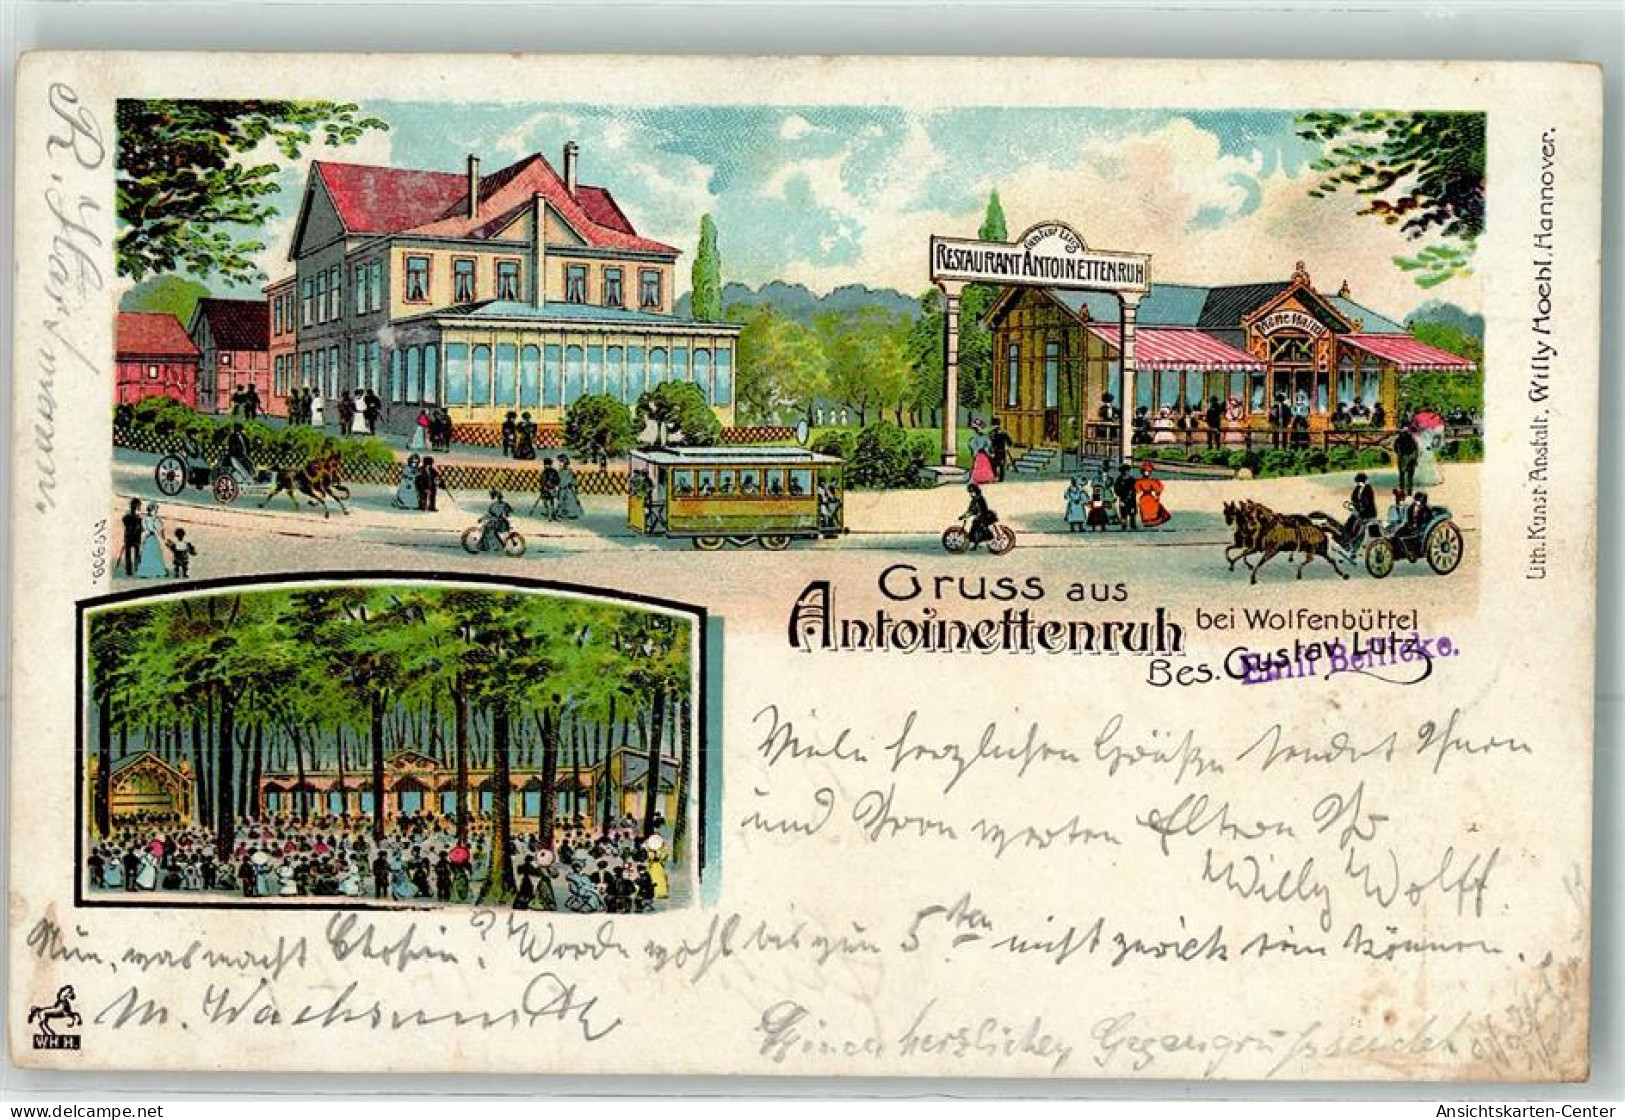 Gustav Lutz
RESTAURANT ANTOINETTENRUH
Gruss aus
Antoinettenruh bei Wolfenbüttel
Bes. Gustav Lutz
Emil Beilicke.
Lith. Kunst-Anstalt. Willy Hoehl. Hannover.
No 909.
Viele herzlichen Grüße sendet Ihnen
und Ihren werten Eltern Ihr
Willy Wolff
Nun, was macht ? Werde wohl bis zum 5ten nicht zurück sein können.
M. Wachsmuth
herzlichen Gegengruß sendet
R.
WHH.
Ansichtskarten-Center